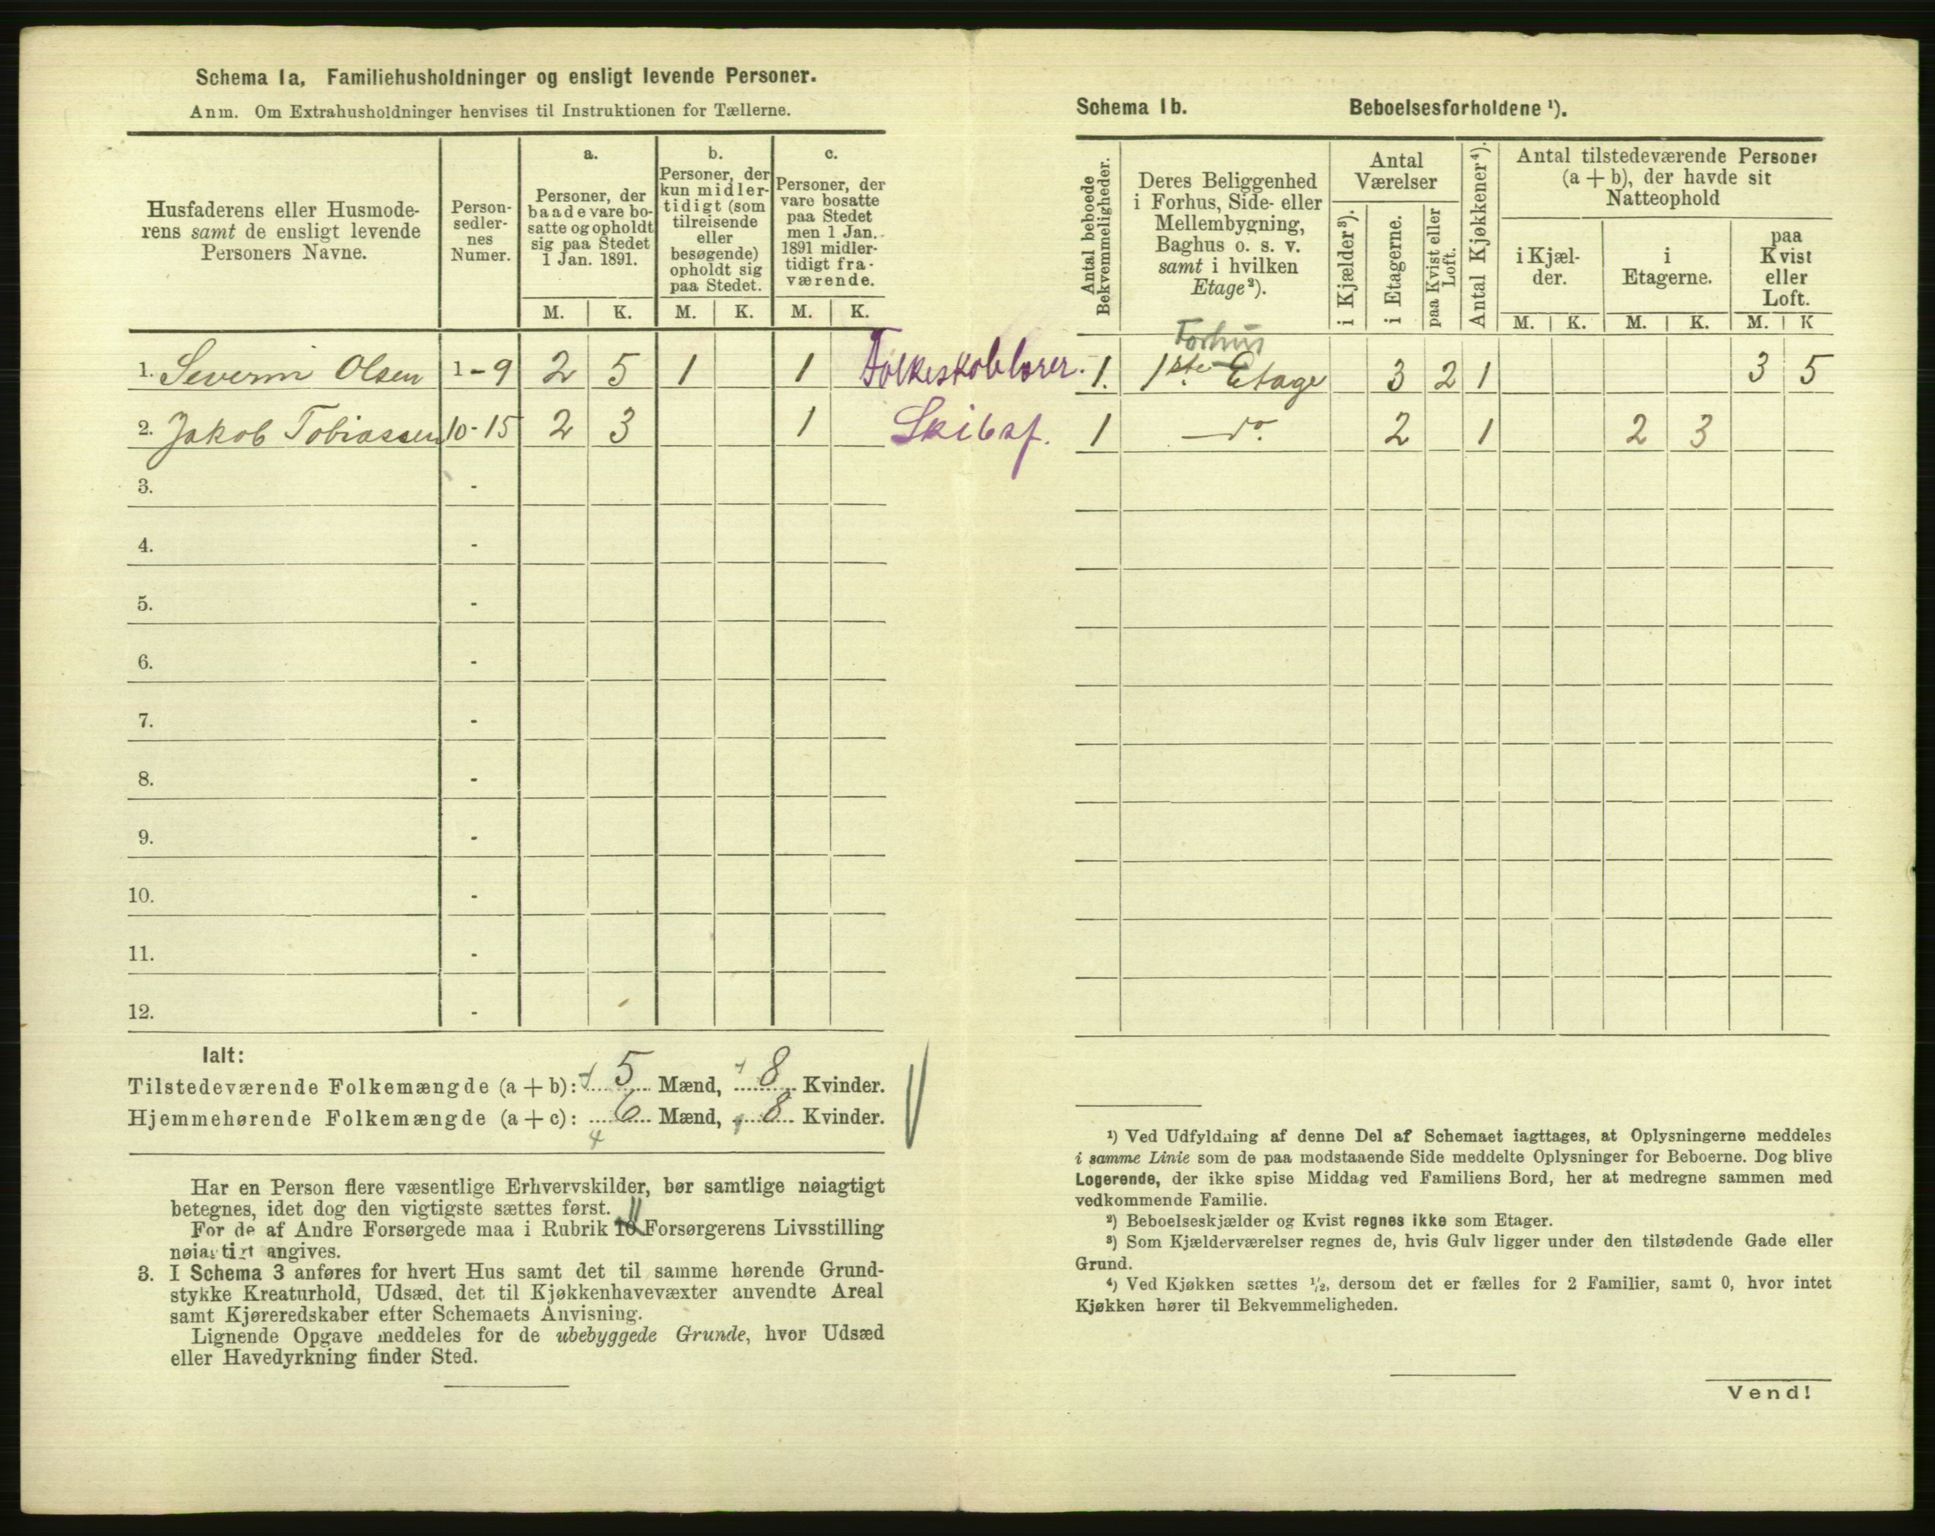 Schema 1a, Familiehusholdninger og ensligt levende Personer.
Anm. Om Extrahusholdninger henvises til Instruktionen for Tællerne.
Husfaderens eller Husmode-
rens samt de ensligt levende
Personers Navne.
Person-
sedler-
nes
Numer.
a.
Personer, der
baade vare bo-
satte og opholdt
sig paa Stedet
1 Jan. 1891.
b.
Personer, der
kun midler-
tidigt (som
tilreisende
eller
besøgende)
opholdt sig
paa Stedet.
c.
Personer, der
vare bosatte
paa Stedet
men 1 Jan.
1891 midler-
tidigt fra-
værende.
M. K. M. K. M. K.
1. Severin Olsen 1-9 2 5 1 1 Folkeskolelærer.
2. Jakob Tobiassen 10-15 2 3 1 Skibsf.
3. -
4. -
5. -
6. -
7. -
8. -
9. -
10. -
11. -
12. -
Ialt:
Tilstedeværende Folkemængde (a + b): 5 Mænd, 8 Kvinder.
Hjemmehørende Folkemængde (a + c): 6 Mænd, 8 Kvinder.
4
Har en Person flere væsentlige Erhvervskilder, bør samtlige nøiagtigt
betegnes, idet dog den vigtigste sættes først.
For de af Andre Forsørgede maa i Rubrik 10 Forsørgerens Livsstilling
nøiagtigt angives.
3. I Schema 3 anføres for hvert Hus samt det til samme hørende Grund-
stykke Kreaturhold, Udsæd, det til Kjøkkenhavevæxter anvendte Areal
samt Kjøreredskaber efter Schemaets Anvisning.
Lignende Opgave meddeles for de ubebyggede Grunde, hvor Udsæd
eller Havedyrkning finder Sted.
Schema 1b. Beboelsesforholdene ¹).
Antal beboede
Bekvemmeligheder.
Deres Beliggenhed
i Forhus, Side- eller
Mellembygning,
Baghus o. s. v.
samt i hvilken
Etage²).
Antal
Værelser
i Kjælder³).
i Etagerne.
paa Kvist eller
Loft.
Antal Kjøkkener⁴).
Antal tilstedeværende Personer
(a + b), der havde sit
Natteophold
i Kjæl-
der.
i
Etagerne.
paa
Kvist
eller
Loft.
M. K. M. K. M. K
Forhus
1. 1ste Etage 3 2 1 3 5
1 do. 2 1 2 3
¹) Ved Udfyldning af denne Del af Schemaet iagttages, at Oplysningerne meddeles
i samme Linie som de paa modstaaende Side meddelte Oplysninger for Beboerne. Dog blive
Logerende, der ikke spise Middag ved Familiens Bord, her at medregne sammen med
vedkommende Familie.
²) Beboelseskjælder og Kvist regnes ikke som Etager.
³) Som Kjælderværelser regnes de, hvis Gulv ligger under den tilstødende Gade eller
Grund.
⁴) Ved Kjøkken sættes ½, dersom det er fælles for 2 Familier, samt 0, hvor intet
Kjøkken hører til Bekvemmeligheden.
Vend!